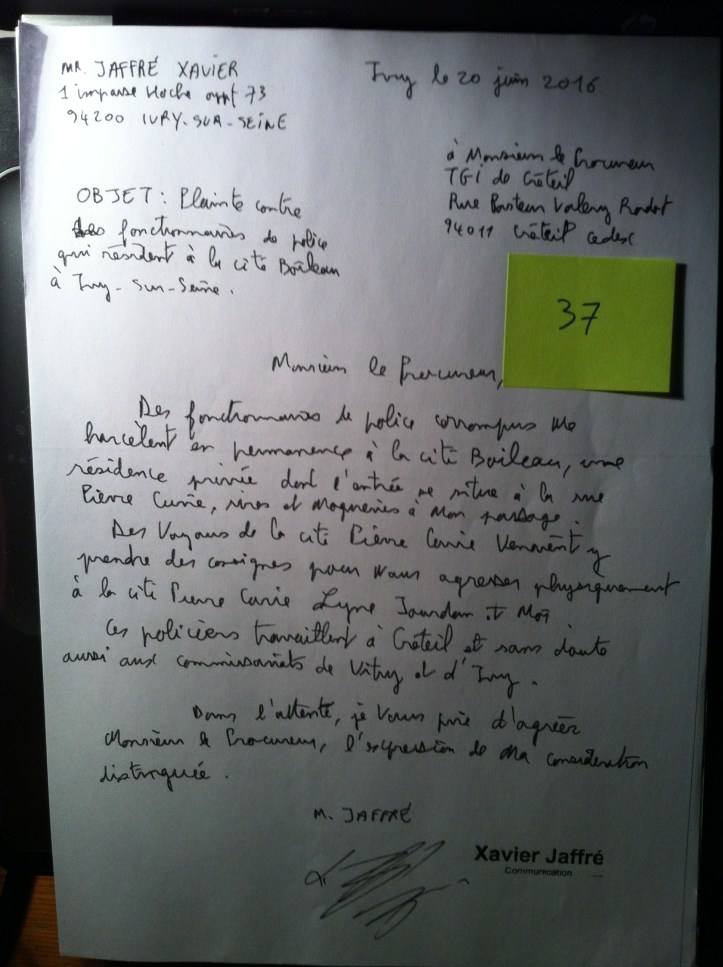 MR. JAFFRÉ XAVIER
1 impasse Hoche appt 73
94200 IVRY-SUR-SEINE
Ivry le 20 juin 2016
à Monsieur le Procureur
TGI de Créteil
Rue Pasteur Valery Radot
94011 Créteil cedex
OBJET : Plainte contre
des fonctionnaires de police
qui résident à la cité Boileau
à Ivry-sur-Seine.
37
Monsieur le Procureur,
Des fonctionnaires de police corrompus me
harcèlent en permanence à la cité Boileau, une
résidence privée dont l'entrée se situe à la rue
Pierre Curie, rires et moqueries à mon passage.
Des voyous de la cité Pierre Curie venaient y
prendre des consignes pour nous agresser physiquement
à la cité Pierre Curie Lyne Jourdan et Moi.
Ces policiers travaillent à Créteil et sans doute
aussi aux commissariats de Vitry et d'Ivry.
Dans l'attente, je vous prie d'agréer
Monsieur le Procureur, l'expression de ma considération
distinguée.
M. JAFFRÉ
Xavier Jaffré
Communication